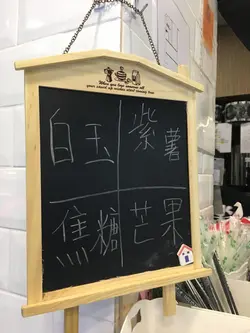 白玉
紫薯
焦糖
芒果